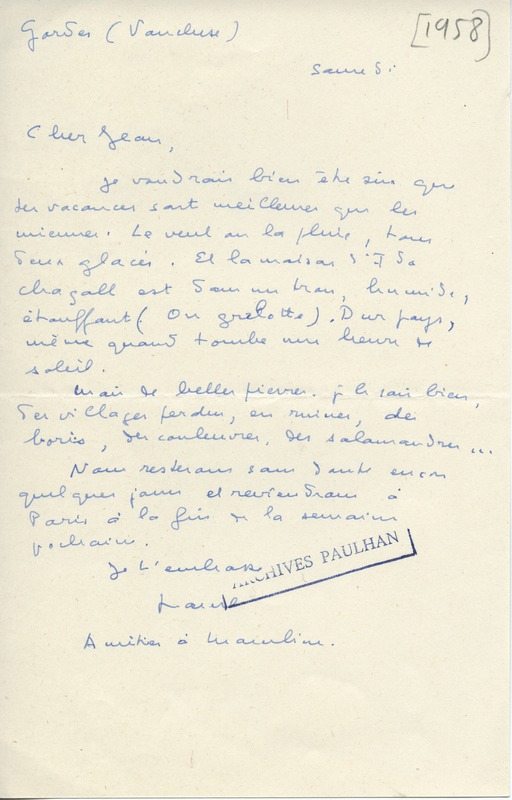 Gordes (Vaucluse)
[1958]
samedi
Cher Jean,
Je voudrais bien être sûr que
tes vacances sont meilleures que les
miennes. Le vent ou la pluie, tous
deux glacés. Et la maison d'Ida
Chagall est dans un trou, humide,
étouffant (On grelotte). Dur pays,
même quand tombe une heure de
soleil.
Mais de belles pierres. Je le sais bien,
des villages perdus, en ruines, des
boris, des couleuvres, des salamandres...
Nous resterons sans doute encore
quelques jours et reviendrons à
Paris à la fin de la semaine
prochaine.
Je t'embrasse
ARCHIVES PAULHAN
Amitiés à